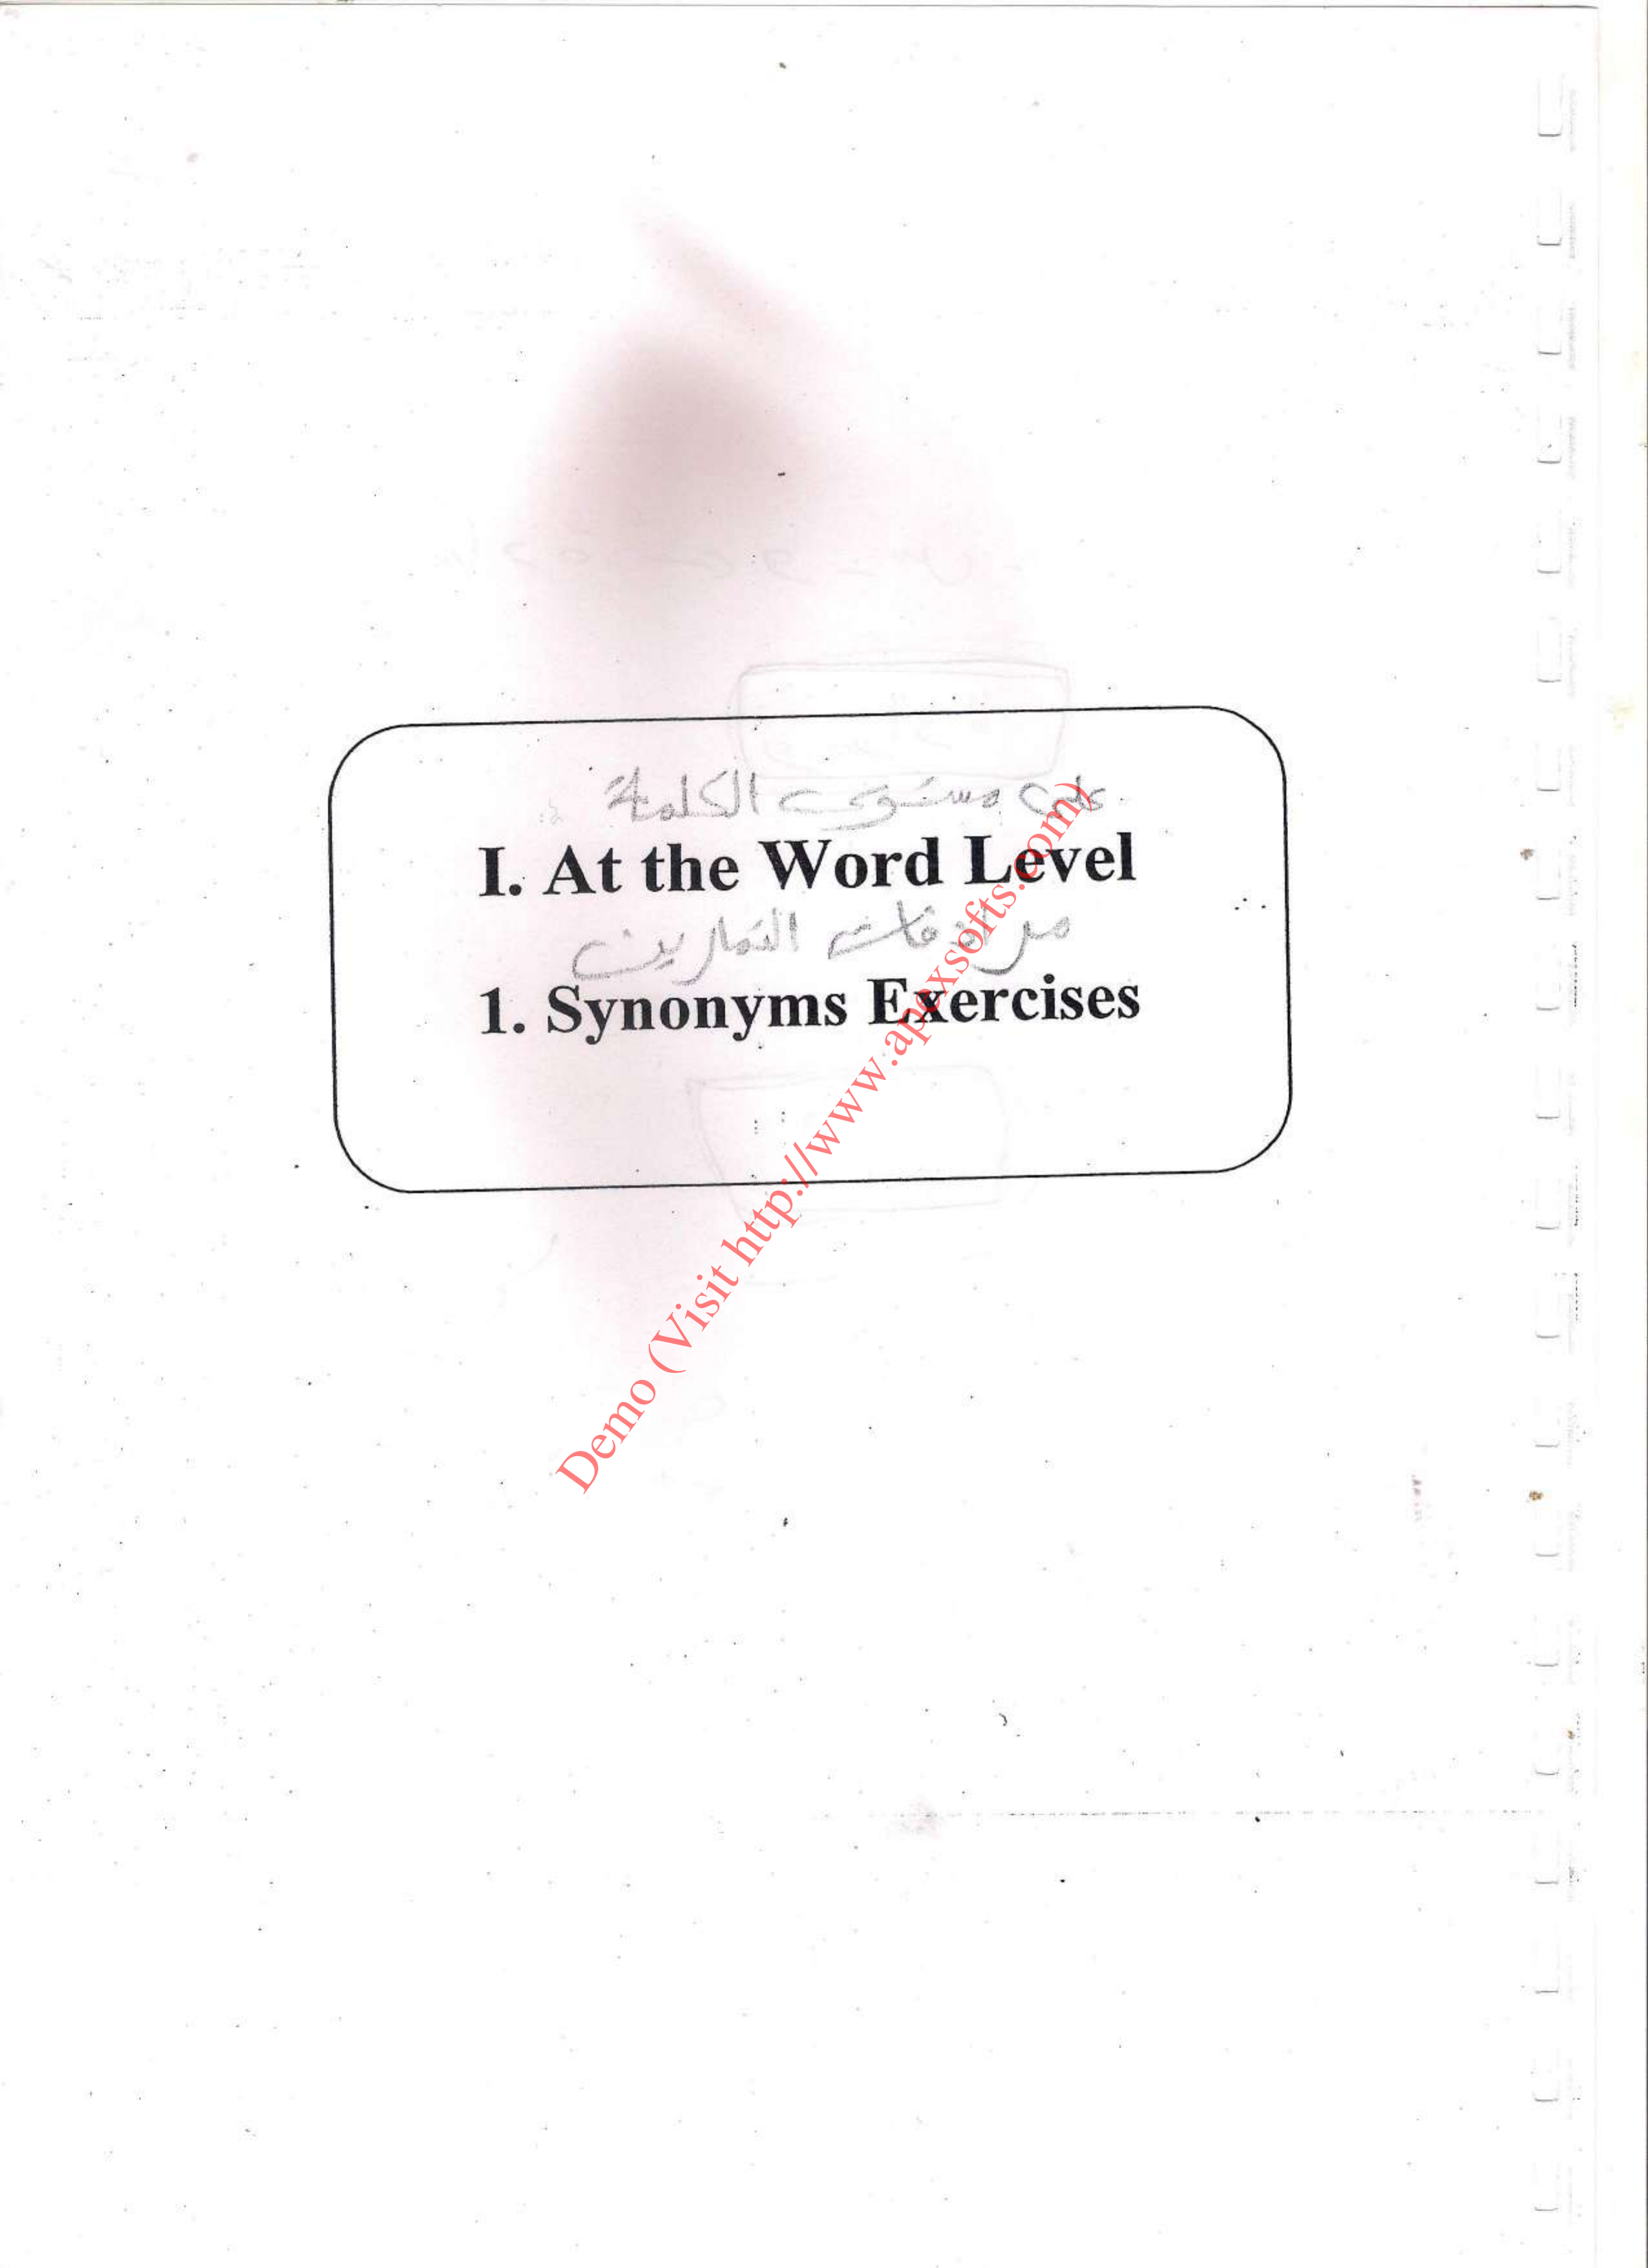 على مستوى الكلمة
I. At the Word Level
مرادفات التمارين
1. Synonyms Exercises
Demo (Visit http://www.apexsofts.com)